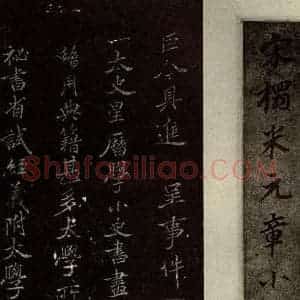 宋搨米元章小
臣今具進呈事件
一太史星曆學小吏書盡
籍用典籍
太學
秘書省試經義附太學
Shufaziliao.com